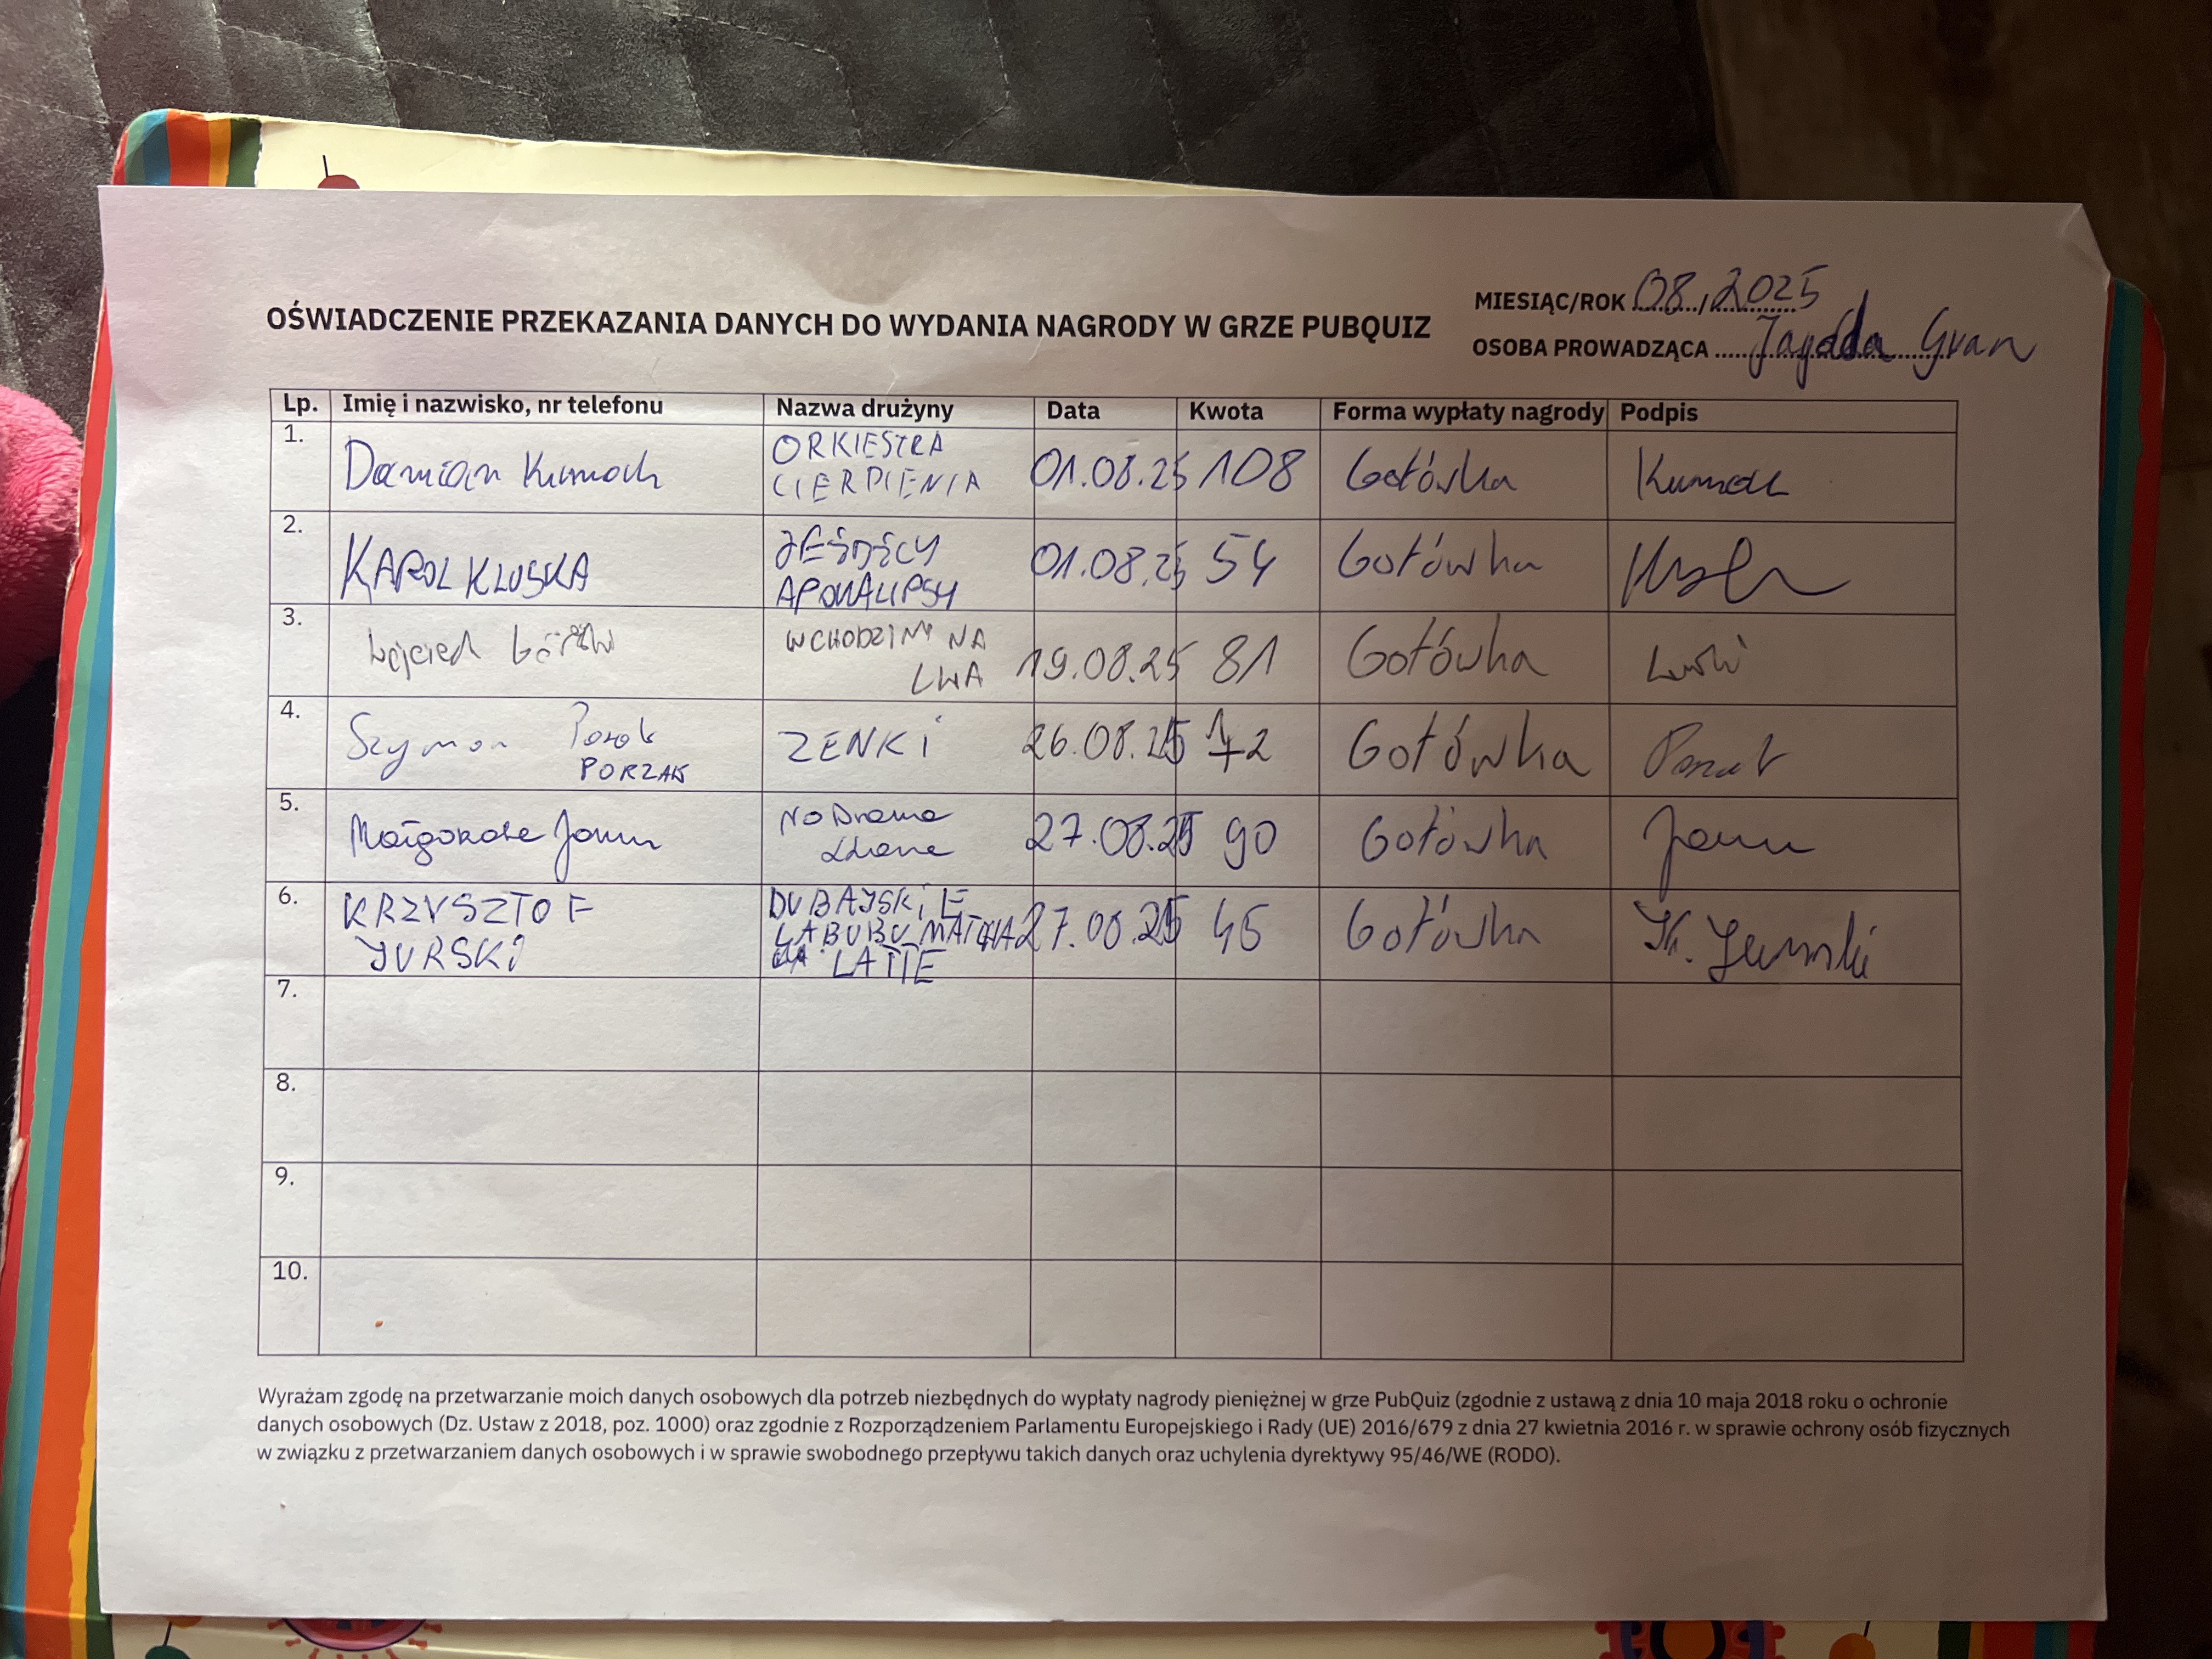 MIESIĄC/ROK 08 / 2025
OŚWIADCZENIE PRZEKAZANIA DANYCH DO WYDANIA NAGRODY W GRZE PUBQUIZ
OSOBA PROWADZĄCA Jagoda Gran
Lp. Imię i nazwisko, nr telefonu Nazwa drużyny Data Kwota Forma wypłaty nagrody Podpis
1. Damian Kumoch ORKIESTRA CIERPIENIA 01.08.25 108 Gotówka Kumoch
2. KAROL KLUSKA JEŹDŹCY APOKALIPSY 01.08.25 54 Gotówka
3. WCHODZIMY NA LWA 19.08.25 81 Gotówka
4. Szymon PORZAK ZENKI 26.08.25 72 Gotówka
5. Małgorzata No Drama 27.08.25 90 Gotówka
6. KRZYSZTOF JURSKI DUBAJSKIE LABUBU MATCHA LATTE 27.08.25 45 Gotówka K. Jurski
7.
8.
9.
10.
Wyrażam zgodę na przetwarzanie moich danych osobowych dla potrzeb niezbędnych do wypłaty nagrody pieniężnej w grze PubQuiz (zgodnie z ustawą z dnia 10 maja 2018 roku o ochronie
danych osobowych (Dz. Ustaw z 2018, poz. 1000) oraz zgodnie z Rozporządzeniem Parlamentu Europejskiego i Rady (UE) 2016/679 z dnia 27 kwietnia 2016 r. w sprawie ochrony osób fizycznych
w związku z przetwarzaniem danych osobowych i w sprawie swobodnego przepływu takich danych oraz uchylenia dyrektywy 95/46/WE (RODO).